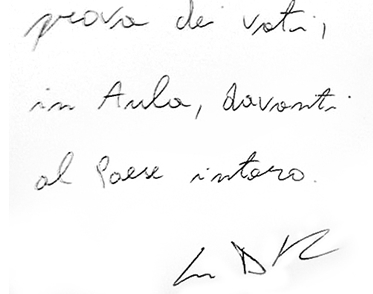 prova dei voti,
in Aula, davanti
al Paese intero.